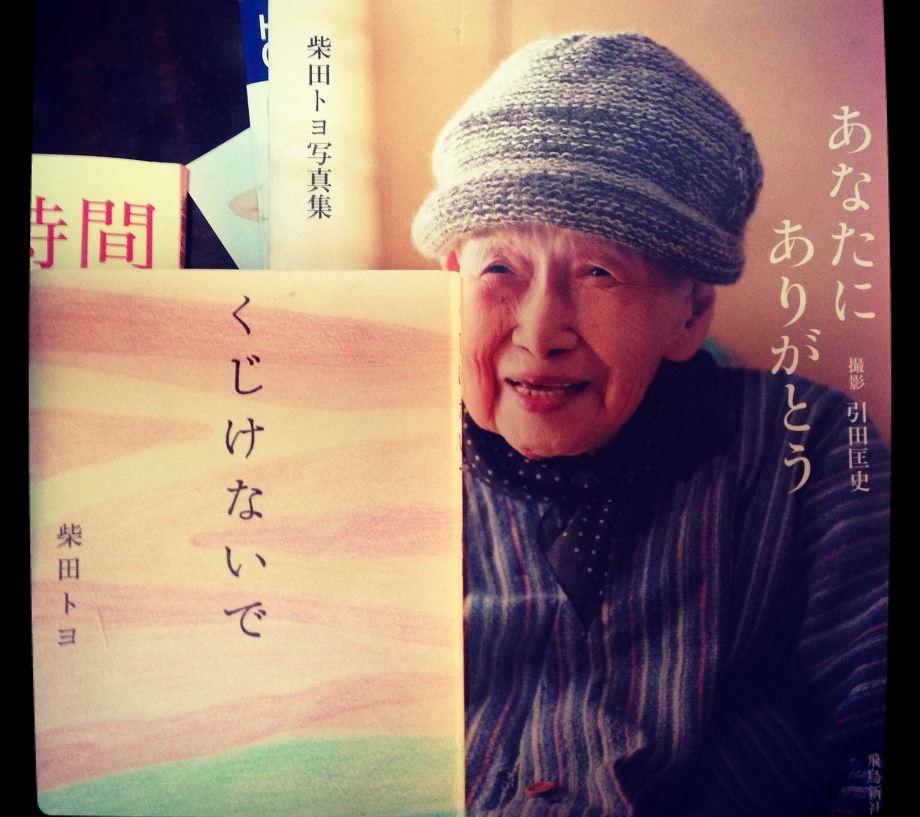 柴田トヨ写真集
あなたに
ありがとう
撮影 引田匡史
飛鳥新社
時間
くじけないで
柴田トヨ